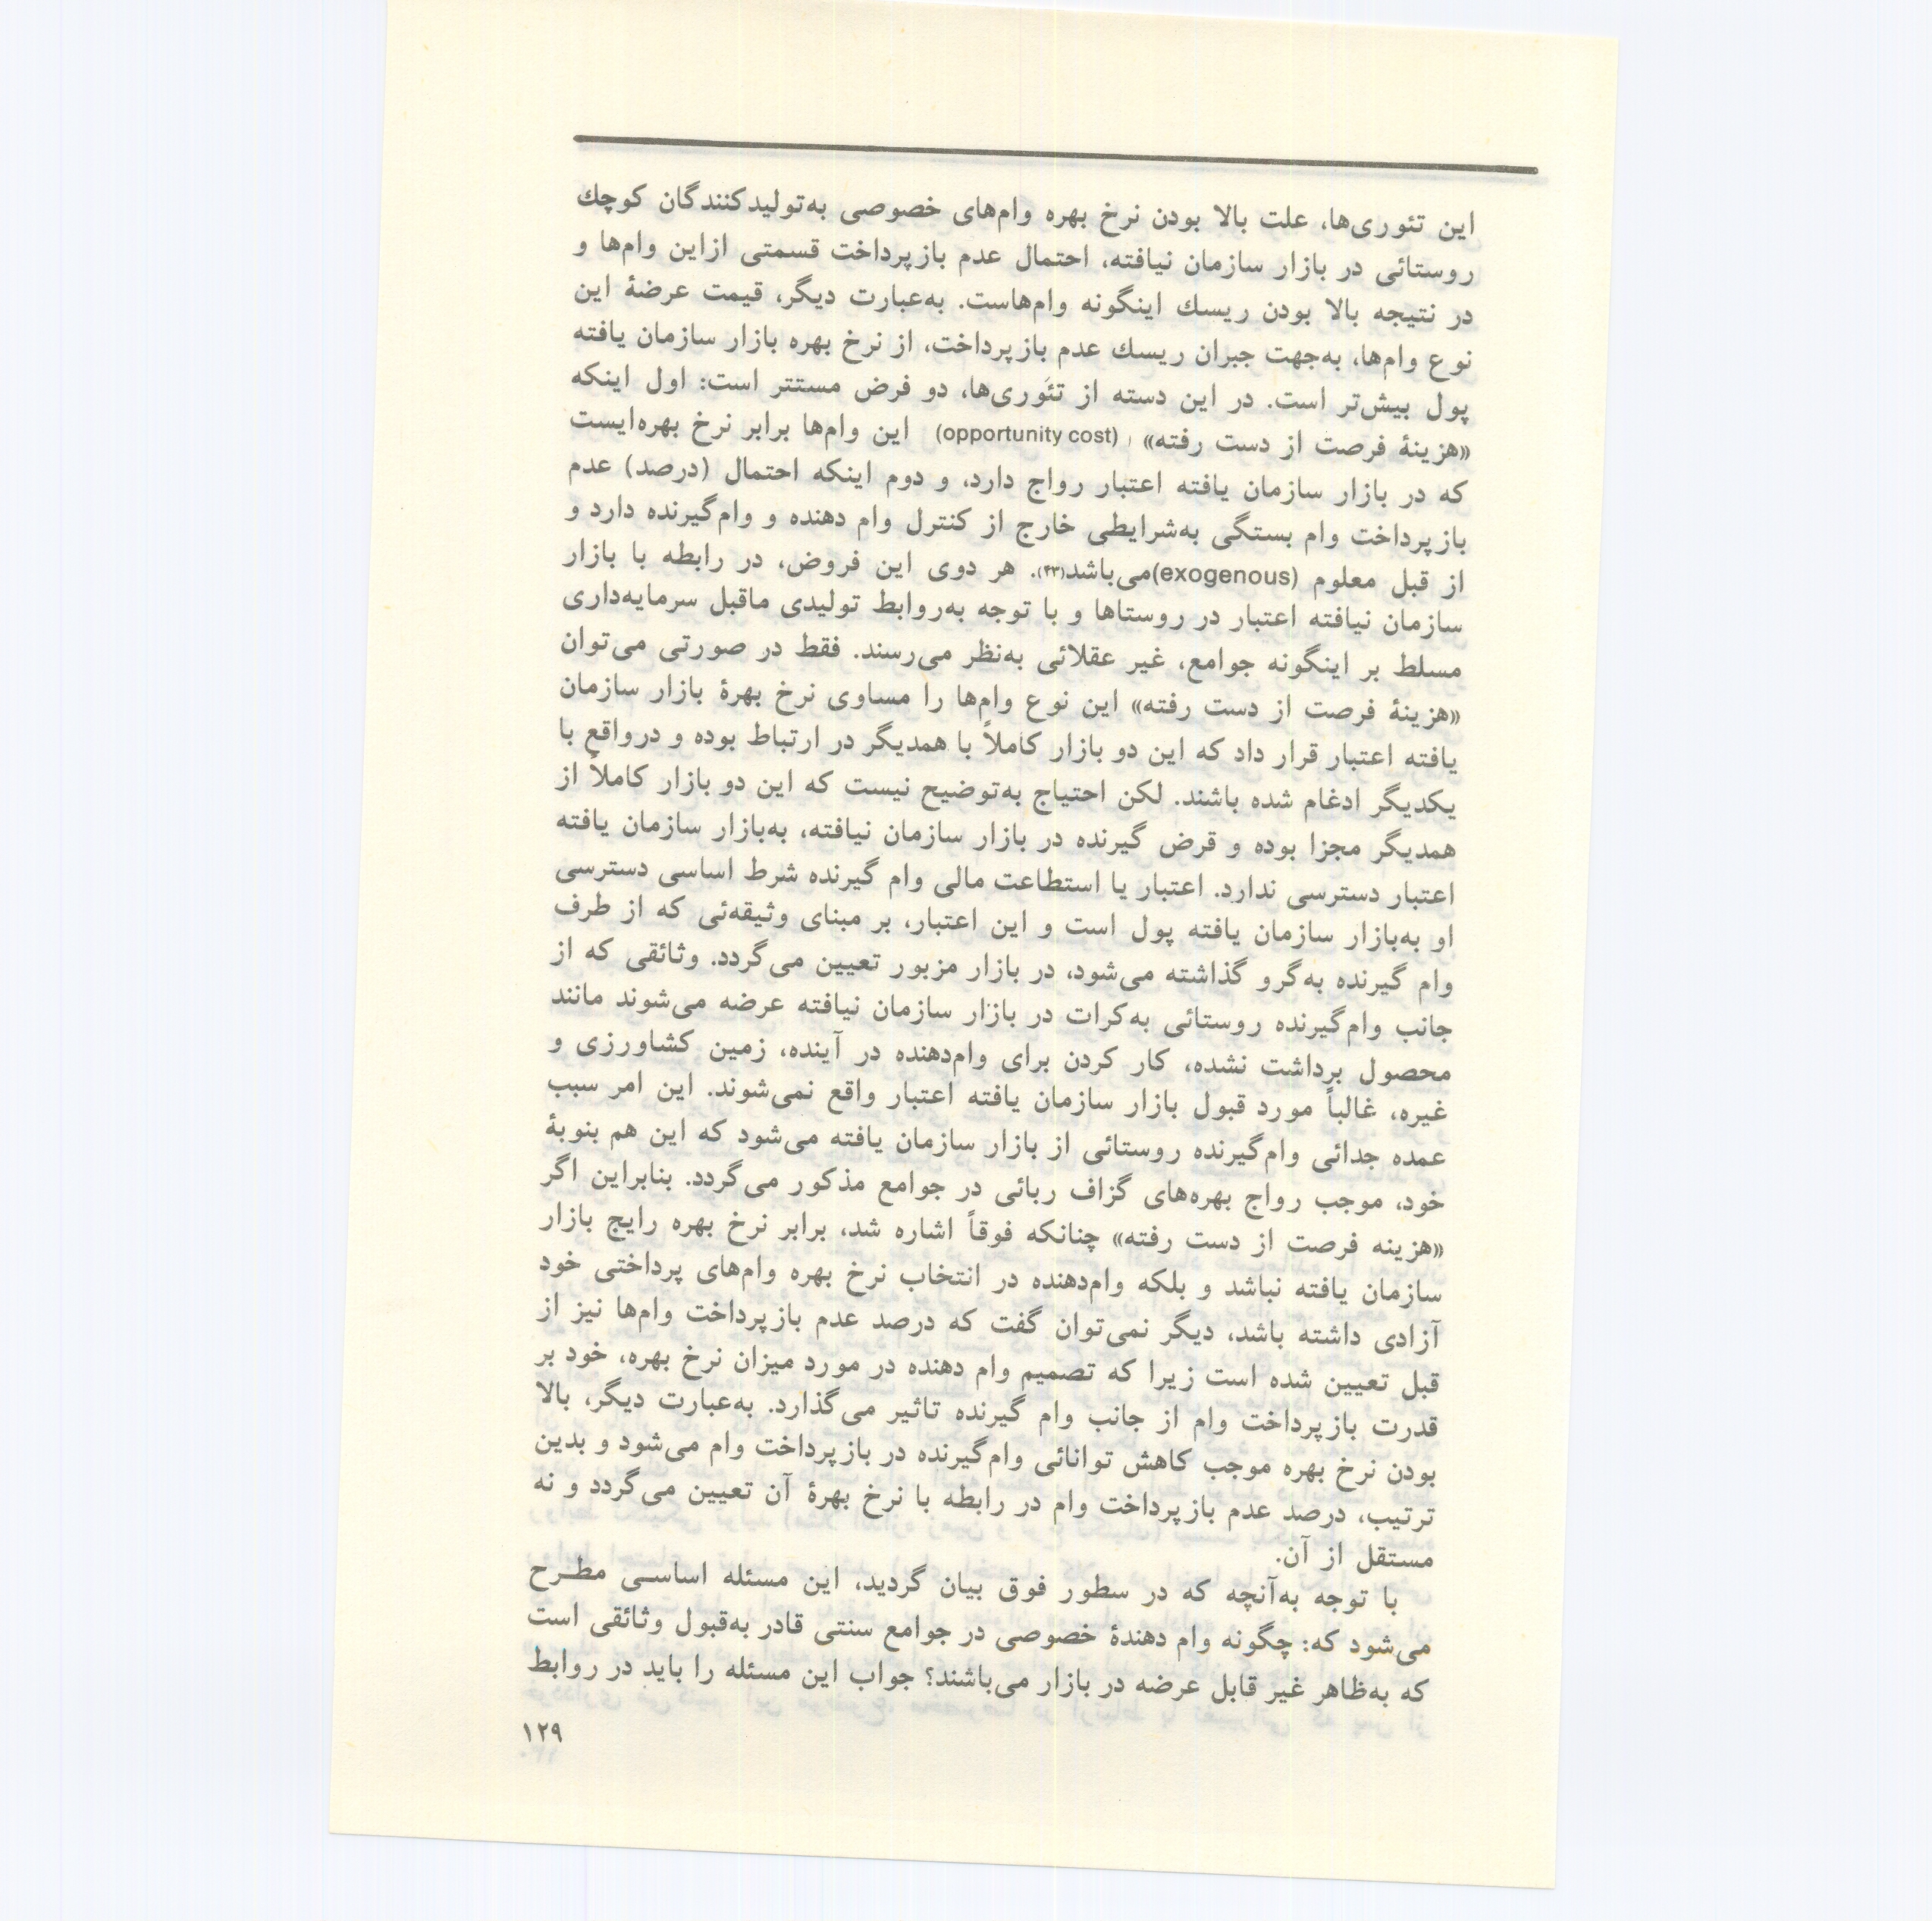 این تئوری‌ها، علت بالا بودن نرخ بهره وام‌های خصوصی به‌تولیدکنندگان کوچك
روستائی در بازار سازمان نیافته، احتمال عدم بازپرداخت قسمتی ازاین وام‌ها و
در نتیجه بالا بودن ریسك اینگونه وام‌هاست. به‌عبارت دیگر، قیمت عرضهٔ این
نوع وام‌ها، به‌جهت جبران ریسك عدم بازپرداخت، از نرخ بهره بازار سازمان یافته
پول بیش‌تر است. در این دسته از تئوری‌ها، دو فرض مستتر است: اول اینکه
«هزینهٔ فرصت از دست رفته» (opportunity cost) این وام‌ها برابر نرخ بهره‌ایست
که در بازار سازمان یافته اعتبار رواج دارد، و دوم اینکه احتمال (درصد) عدم
بازپرداخت وام بستگی به‌شرایطی خارج از کنترل وام دهنده و وام‌گیرنده دارد و
از قبل معلوم (exogenous)می‌باشد(۲۳). هر دوی این فروض، در رابطه با بازار
سازمان نیافته اعتبار در روستاها و با توجه به‌روابط تولیدی ماقبل سرمایه‌داری
مسلط بر اینگونه جوامع، غیر عقلائی به‌نظر می‌رسند. فقط در صورتی می‌توان
«هزینهٔ فرصت از دست رفته» این نوع وام‌ها را مساوی نرخ بهرهٔ بازار سازمان
یافته اعتبار قرار داد که این دو بازار کاملاً با همدیگر در ارتباط بوده و درواقع با
یکدیگر ادغام شده باشند. لکن احتیاج به‌توضیح نیست که این دو بازار کاملاً از
همدیگر مجزا بوده و قرض گیرنده در بازار سازمان نیافته، به‌بازار سازمان یافته
اعتبار دسترسی ندارد. اعتبار یا استطاعت مالی وام گیرنده شرط اساسی دسترسی
او به‌بازار سازمان یافته پول است و این اعتبار، بر مبنای وثیقه‌ئی که از طرف
وام گیرنده به‌گرو گذاشته می‌شود، در بازار مزبور تعیین می‌گردد. وثائقی که از
جانب وام‌گیرنده روستائی به‌کرات در بازار سازمان نیافته عرضه می‌شوند مانند
محصول برداشت نشده، کار کردن برای وام‌دهنده در آینده، زمین کشاورزی و
غیره، غالباً مورد قبول بازار سازمان یافته اعتبار واقع نمی‌شوند. این امر سبب
عمده جدائی وام‌گیرنده روستائی از بازار سازمان یافته می‌شود که این هم بنوبهٔ
خود، موجب رواج بهره‌های گزاف ربائی در جوامع مذکور می‌گردد. بنابراین اگر
«هزینه فرصت از دست رفته» چنانکه فوقاً اشاره شد، برابر نرخ بهره رایج بازار
سازمان یافته نباشد و بلکه وام‌دهنده در انتخاب نرخ بهره وام‌های پرداختی خود
آزادی داشته باشد، دیگر نمی‌توان گفت که درصد عدم بازپرداخت وام‌ها نیز از
قبل تعیین شده است زیرا که تصمیم وام دهنده در مورد میزان نرخ بهره، خود بر
قدرت بازپرداخت وام از جانب وام گیرنده تاثیر می‌گذارد. به‌عبارت دیگر، بالا
بودن نرخ بهره موجب کاهش توانائی وام‌گیرنده در بازپرداخت وام می‌شود و بدین
ترتیب، درصد عدم بازپرداخت وام در رابطه با نرخ بهرهٔ آن تعیین می‌گردد و نه
مستقل از آن.
با توجه به‌آنچه که در سطور فوق بیان گردید، این مسئله اساسی مطرح
می‌شود که: چگونه وام دهندهٔ خصوصی در جوامع سنتی قادر به‌قبول وثائقی است
که به‌ظاهر غیر قابل عرضه در بازار می‌باشند؟ جواب این مسئله را باید در روابط
۱۲۹